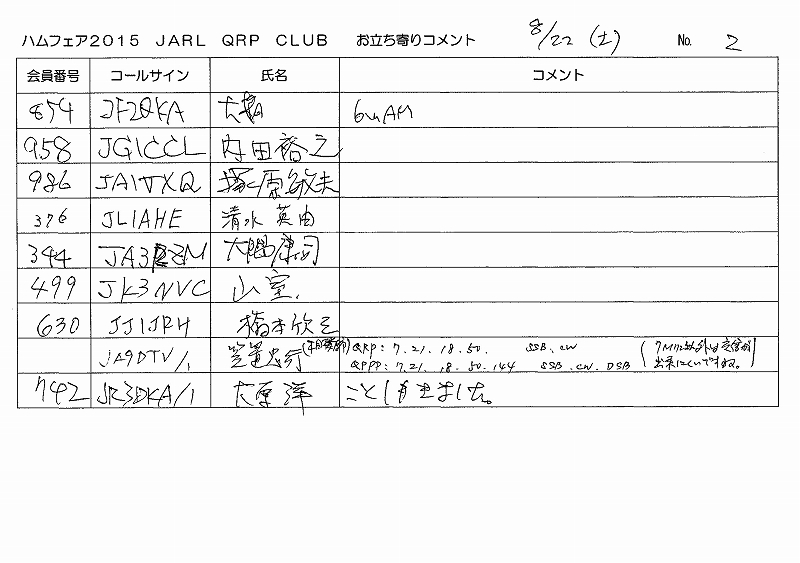 ハムフェア2015 JARL QRP CLUB お立ち寄りコメント 8/22 (土) No. 2
会員番号 コールサイン 氏名 コメント
854 JF2QKA 6m AM
958 JG1CCL 内田裕之
986 JA1TXQ 塚原敏夫
376 JL1AHE 清水英由
344 大隅康司
499 JK3NVC 山室.
630 JJ1JRH 橋本欣之
JA9DTV/1 笠置忠行 QRP: 7.21.18.50. SSB.cw (7MHz以外は交信が
QPPP: 7.21.18.50.144 SSB.cw.DSB 出来にくいですね。)
742 JR3DKA/1 大原洋 ことしもきました。